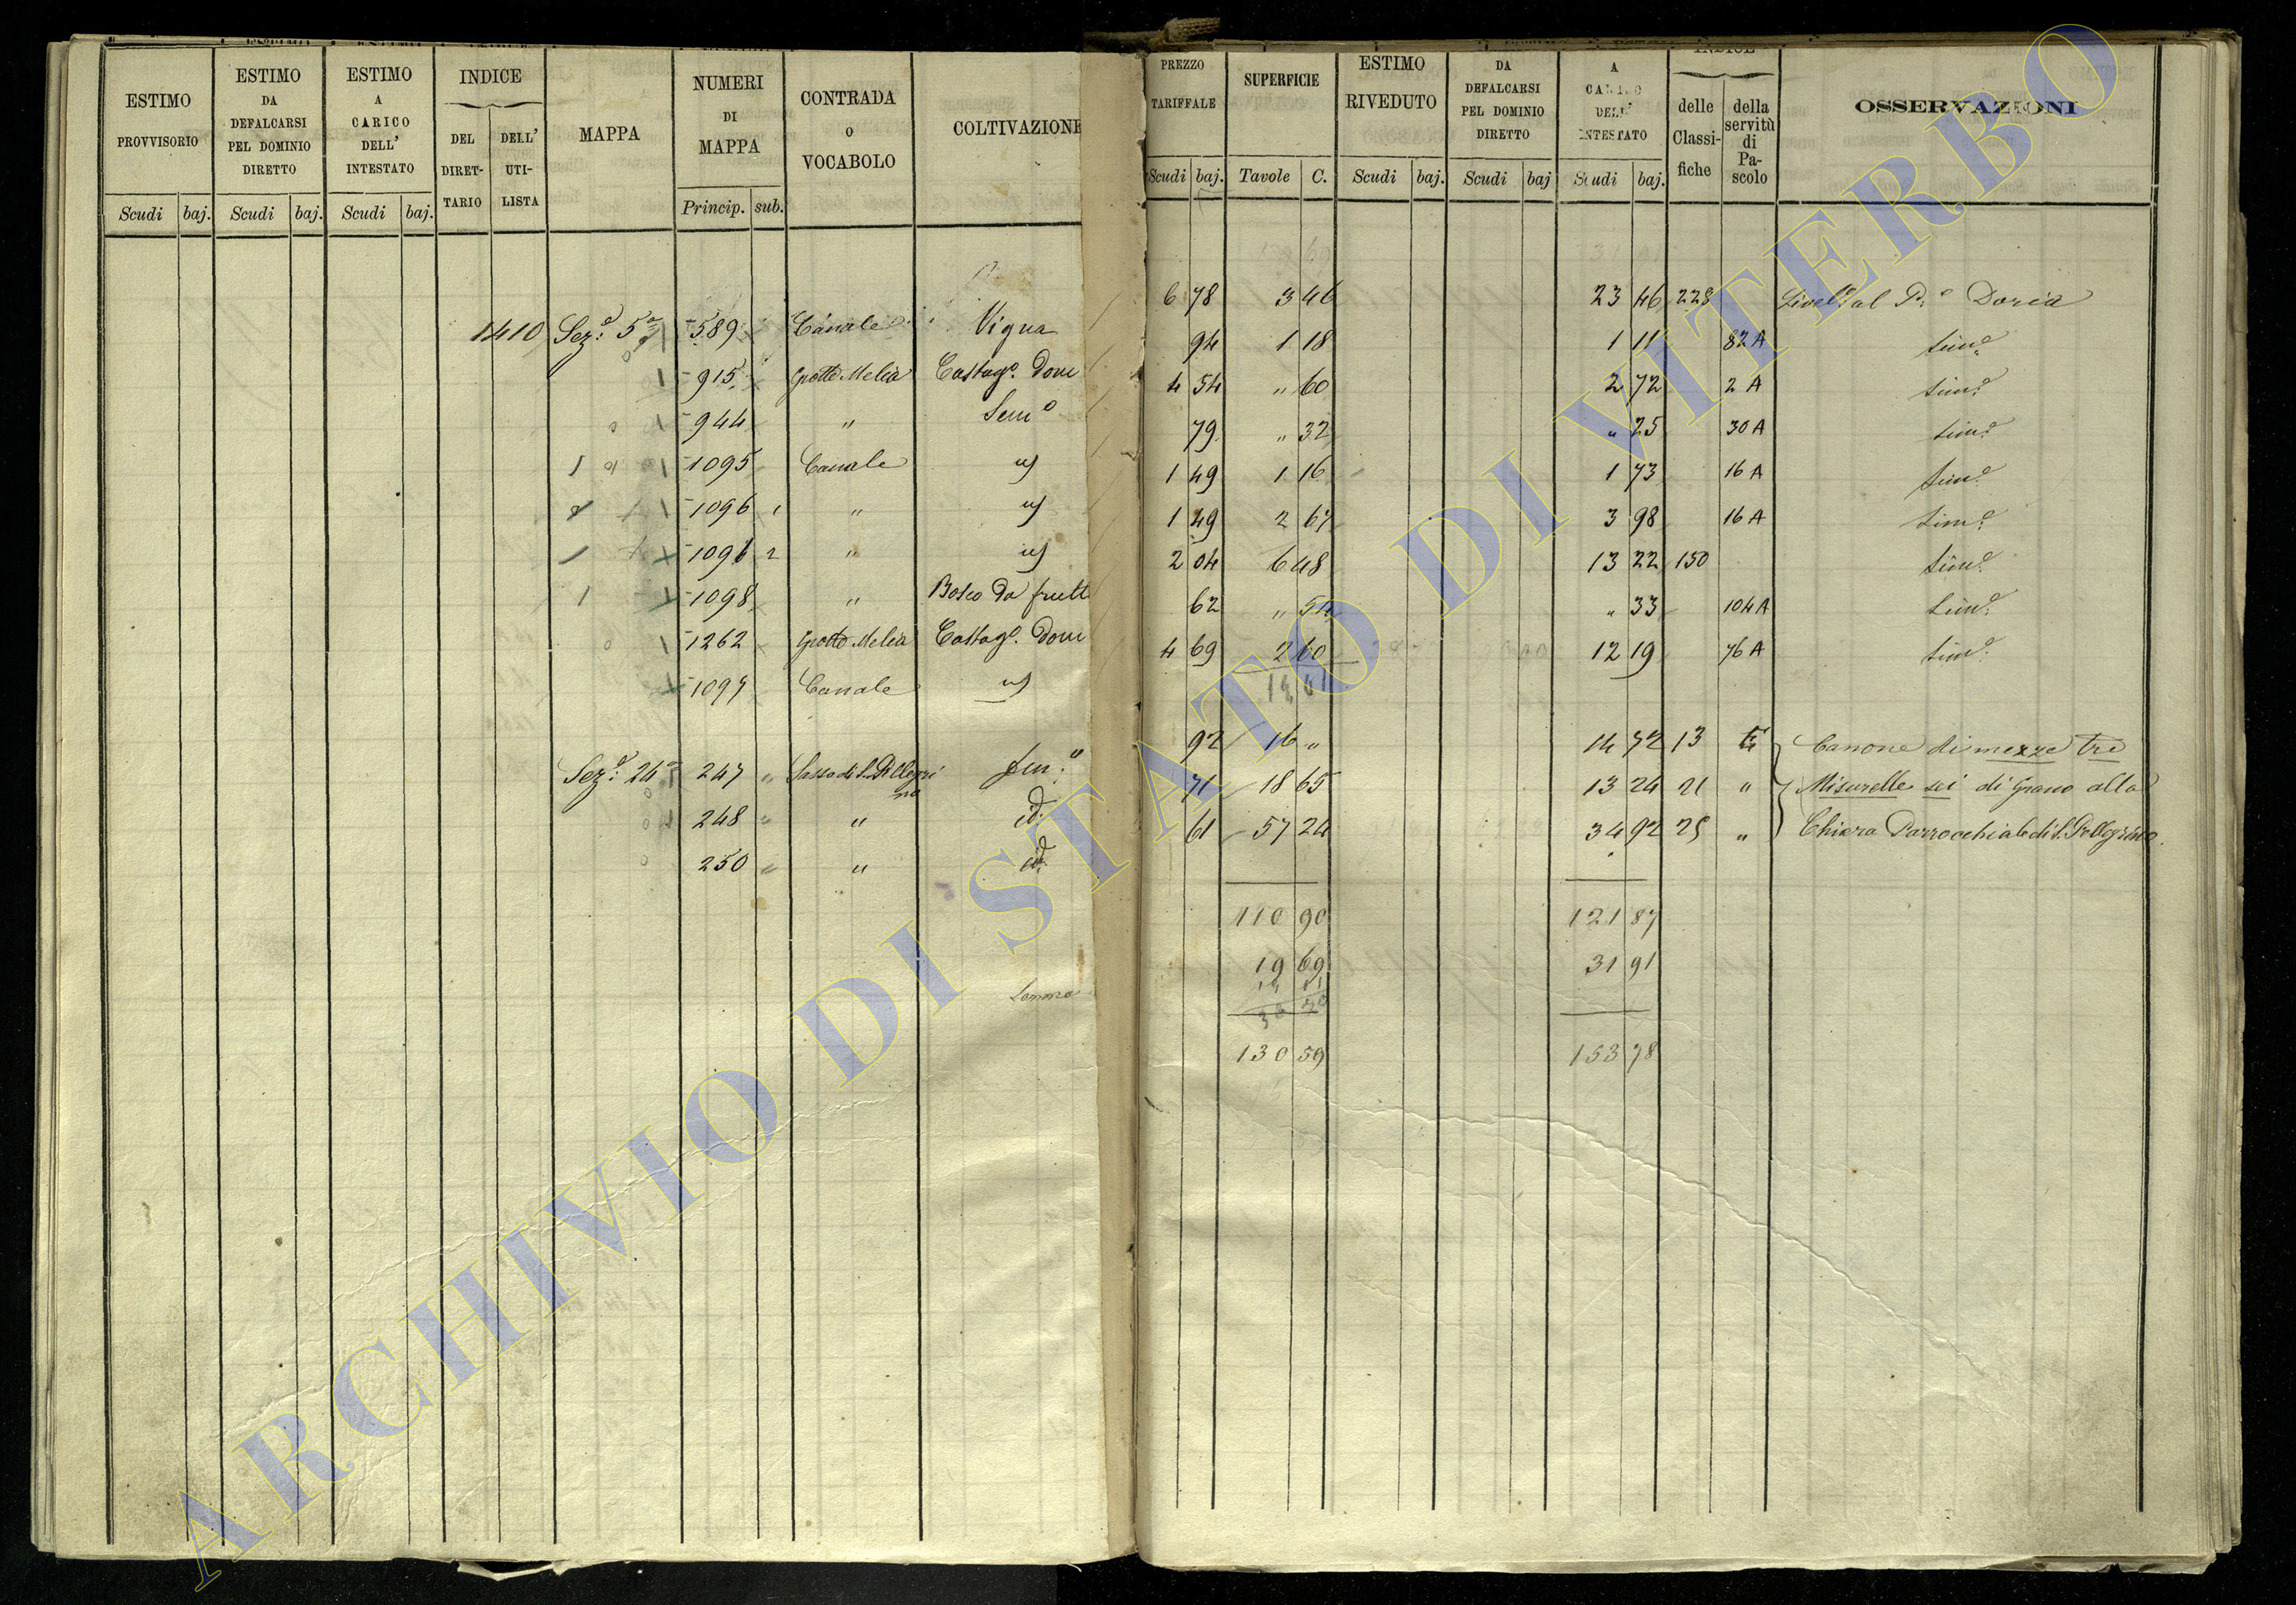 ESTIMO PROVVISORIO
ESTIMO DA DEFALCARSI PEL DOMINIO DIRETTO
ESTIMO A CARICO DELL' INTESTATO
INDICE
DEL DIRETTARIO
DELL' UTILISTA
MAPPA
NUMERI DI MAPPA
CONTRADA O VOCABOLO
COLTIVAZIONE
Scudi baj. Scudi baj. Scudi baj. Princip. sub.
1410 Sez.e 5a 589 Canale Vigna
915 Grotte Melea Castag.o Dom
944 " Sem.o
1095 Canale
1096 1 "
1096 2 "
1098 " Bosco da frutt
1262 Grotte Melea Castag.o Dom
1097 Canale
Sez.e 24a 247 " Sasso di S. Pillegrino Sem.o
248 " " id.
250 " " id.
Somma
PREZZO TARIFFALE
SUPERFICIE
ESTIMO RIVEDUTO
DA DEFALCARSI PEL DOMINIO DIRETTO
A CARICO DELL' INTESTATO
INDICE
delle Classifiche
della servitù di Pascolo
OSSERVAZIONI
Scudi baj. Tavole C. Scudi baj. Scudi baj Scudi baj.
6 78 3 46 23 46 228 Livell.o al P.e Doria
94 1 18 1 11 82 A sim.e
4 54 " 60 2 72 2 A sim.e
79 " 32 " 25 30 A sim.e
1 49 1 16 1 73 16 A sim.e
1 49 2 67 3 98 16 A sim.e
2 04 6 48 13 22 150 sim.e
62 " 54 " 33 104 A sim.e
4 69 2 60 12 19 76 A sim.e
19 01
92 16 " 14 72 13 Canone di mezze tre
71 18 65 13 24 21 " Misurelle sei di grano alla
61 57 24 34 92 25 " Chiesa Parrocchiale di S. Pellegrino.
110 90 121 87
19 69 31 91
130 59 153 78
ARCHIVIO DI STATO DI VITERBO